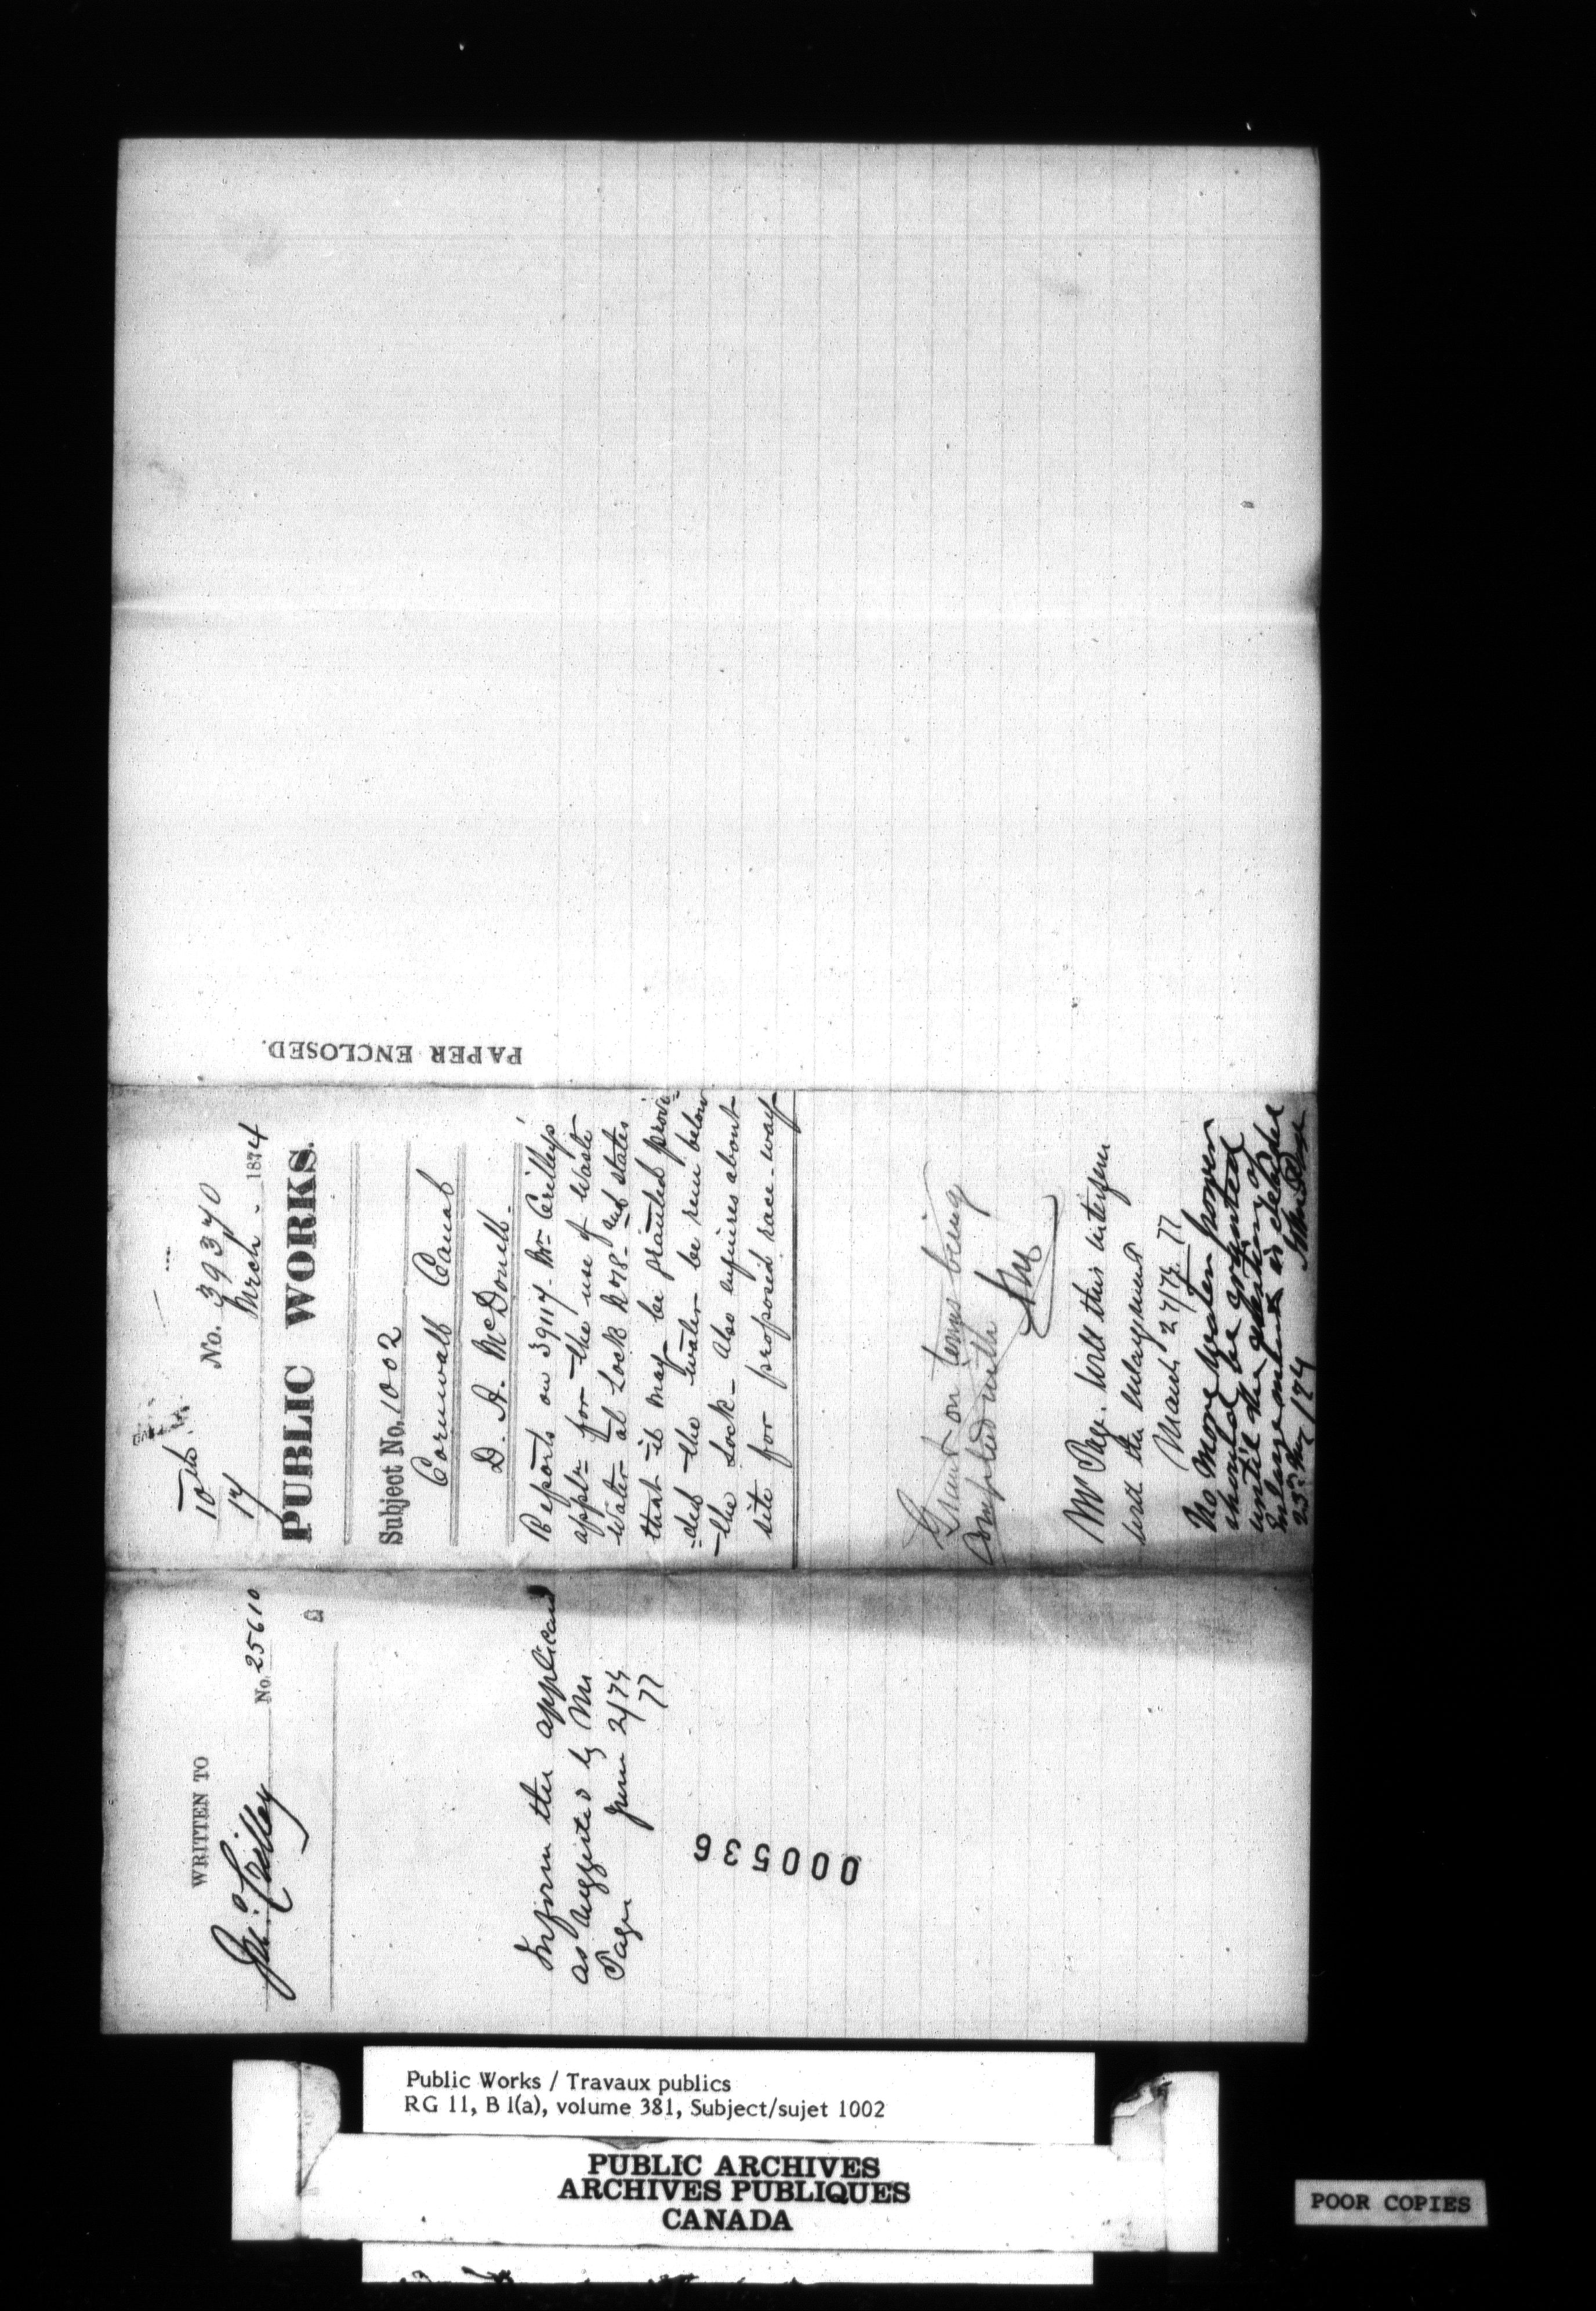 PAPER ENCLOSED.
10th
17
No. 39370
Mrch. 1874
PUBLIC WORKS.
Subject No. 1002
Cornwall Canal
D. A. McDonell.
Reports on 39117. Mr. Crilleys
appln. for the use of Waste
Water at Lock No 18. and states
that it may be granted provi-
-ded the water be run below
the Lock. Also enquires about
site for proposed race-way
Grant on terms being
complied with
Mr Page. Will this interfere
with the enlargement
March 27/74
No more water power
should be granted
until the question of
Enlargement is decided
23d May /74 John Page
WRITTEN TO
Jno. Crilley
No. 25610
Inform the applicant
as suggested by Mr
Page June 2/74
000536
Public Works / Travaux publics
RG 11, B 1(a), volume 381, Subject/sujet 1002
PUBLIC ARCHIVES
ARCHIVES PUBLIQUES
CANADA
POOR COPIES